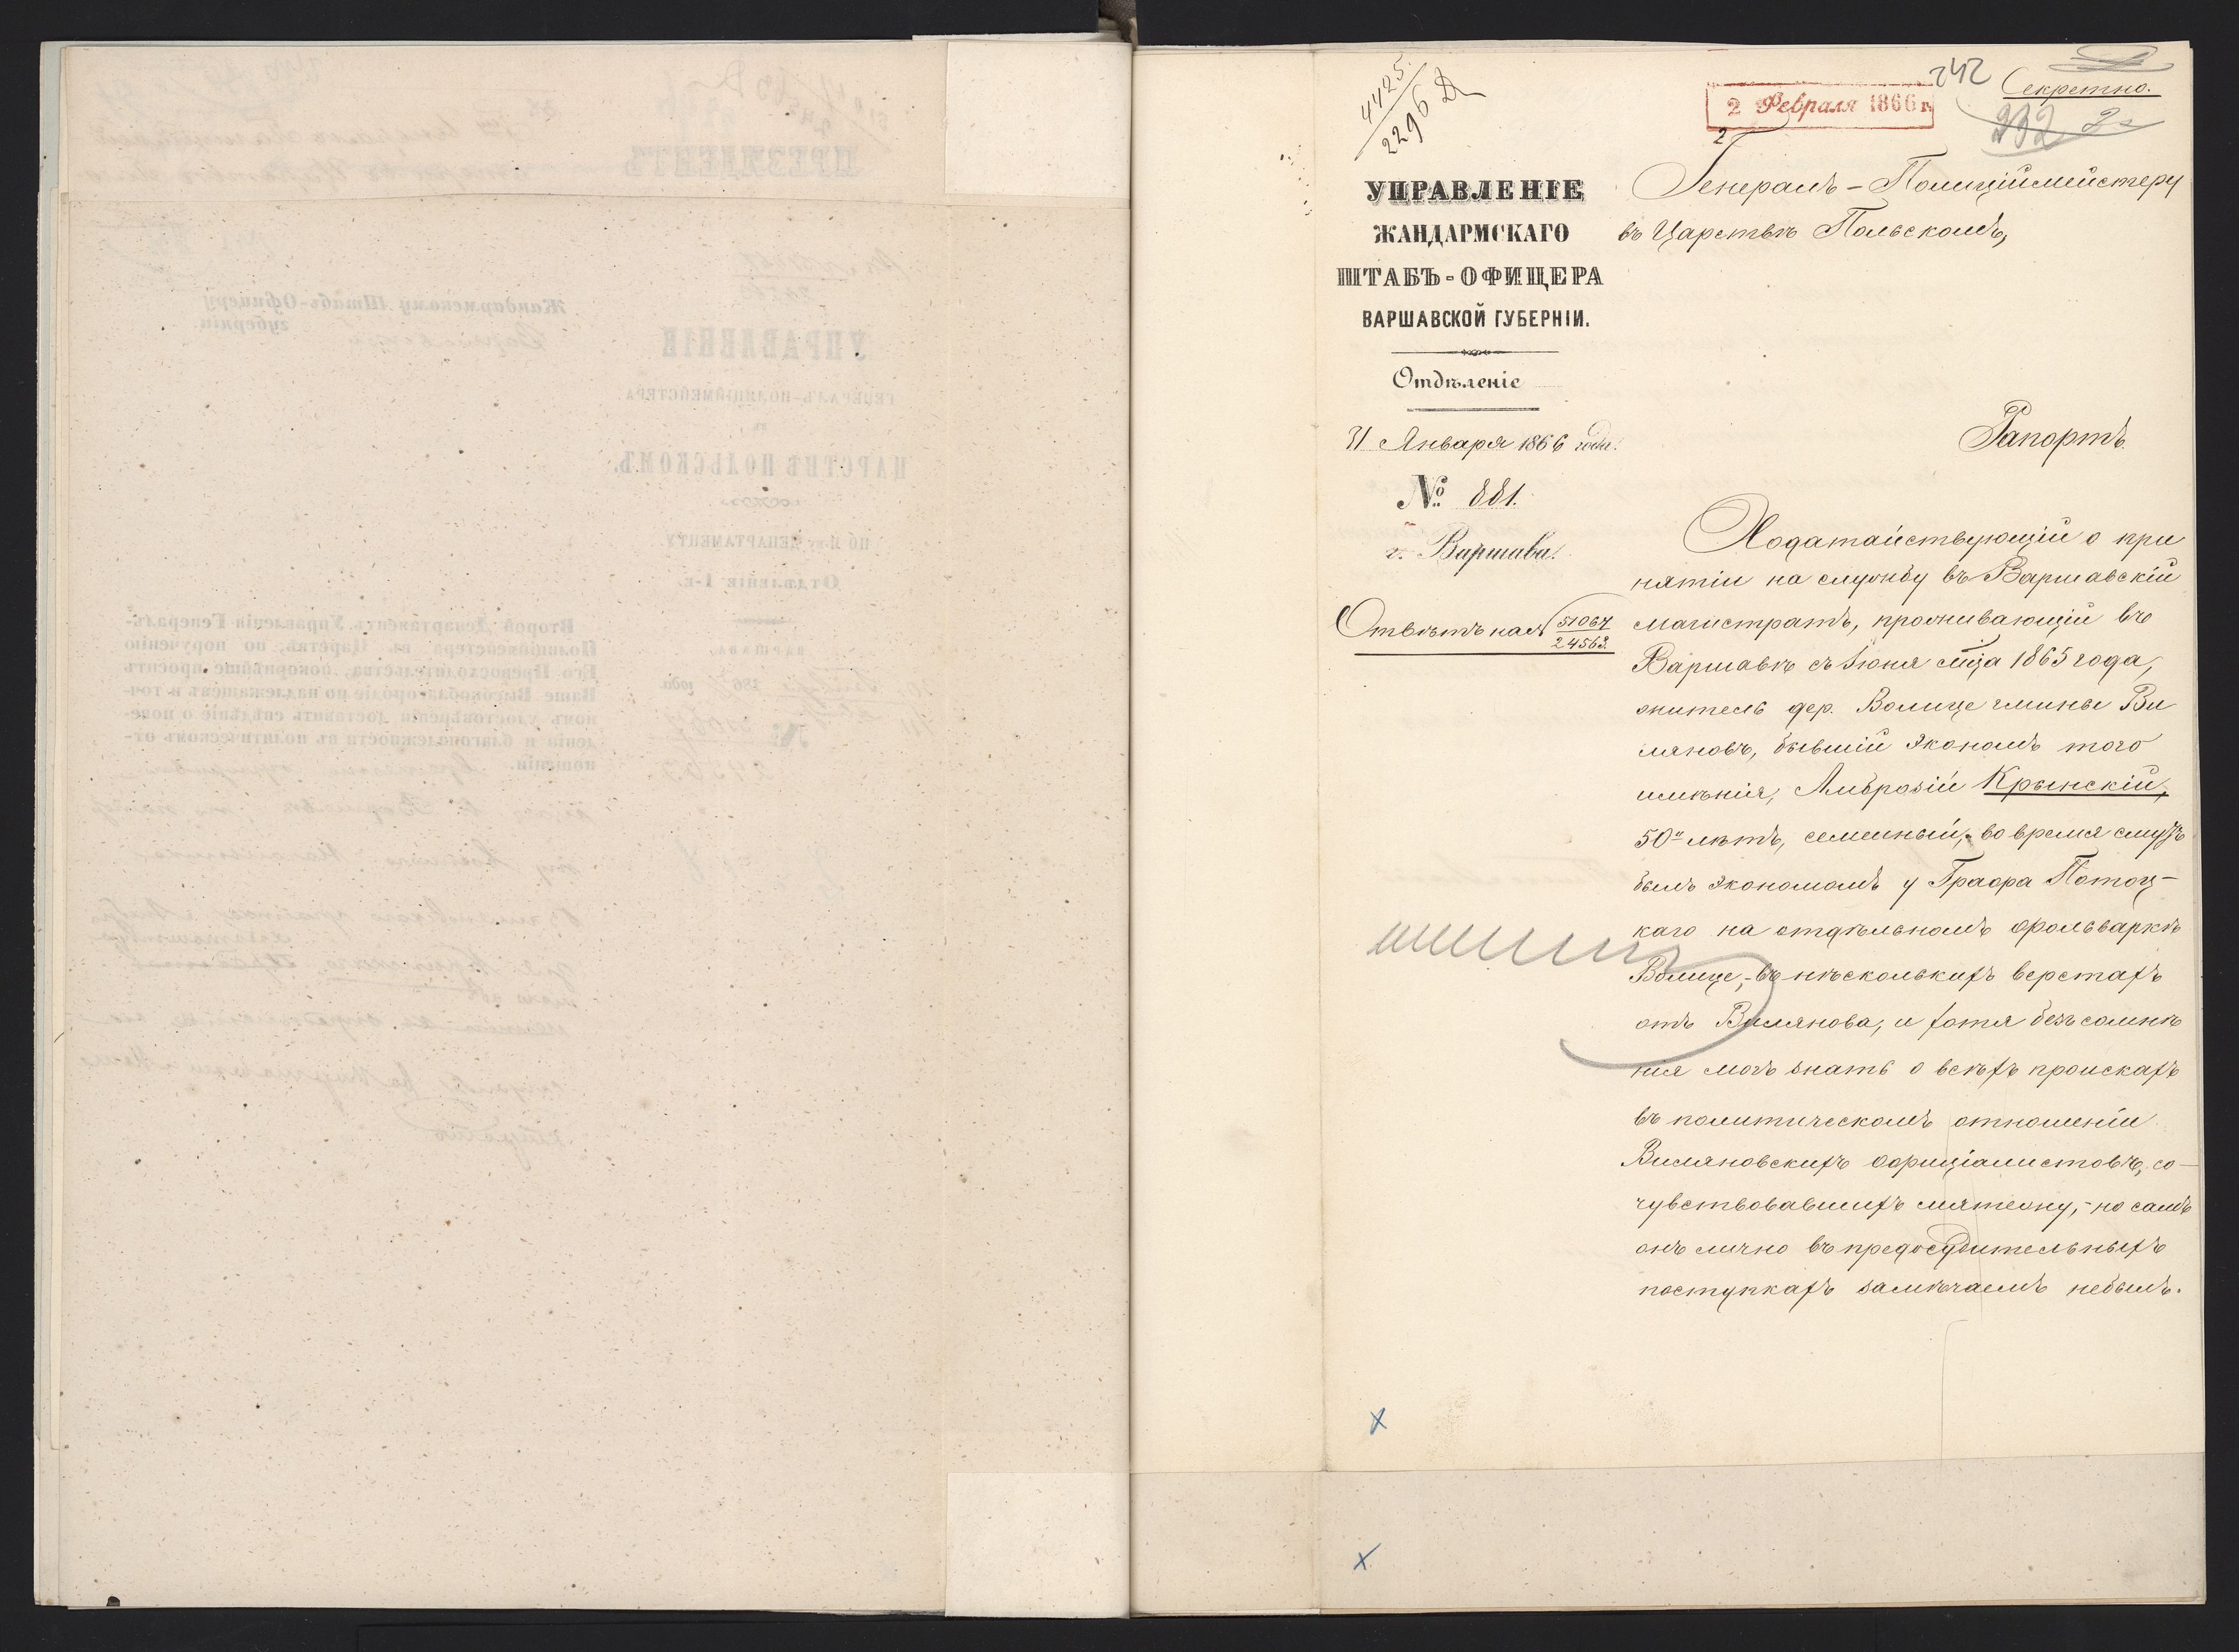 4425
2296 Д
242
Секретно.
2 Февраля 1866 г.
232 2
2
УПРАВЛЕНІЕ
ЖАНДАРМСКАГО
ШТАБЪ-ОФИЦЕРА
ВАРШАВСКОЙ ГУБЕРНІИ.
Отдѣленіе
31 Января 1866 года.
№ 881.
г. Варшава.
Отвѣтъ на № 51067
24563.
Генералъ-Полиціймейстеру
въ Царствѣ Польскомъ,
Рапортъ.
Ходатайствующій о при
нятіи на службу въ Варшавскій
магистратъ, проживающій въ
Варшавѣ съ Іюня мѣца 1865 года,
житель дер. Волице гмины Ви
ляновъ, бывшій экономъ того
имѣнія, Амброзій Крынскій,
50и лѣтъ, семейный, во время смутъ
былъ экономомъ у Графа Потоц-
каго на отдѣльномъ фольваркѣ
Волице,- въ нѣсколькихъ верстахъ
отъ Вилянова, и хотя безъ сомнѣ
нія могъ знать о всѣхъ проискахъ
въ политическомъ отношеніи
Виляновскихъ оффиціалистовъ, со-
чувствовавшихъ мятежу,- но самъ
онъ лично въ предосудительныхъ
поступкахъ замѣчаемъ небылъ.